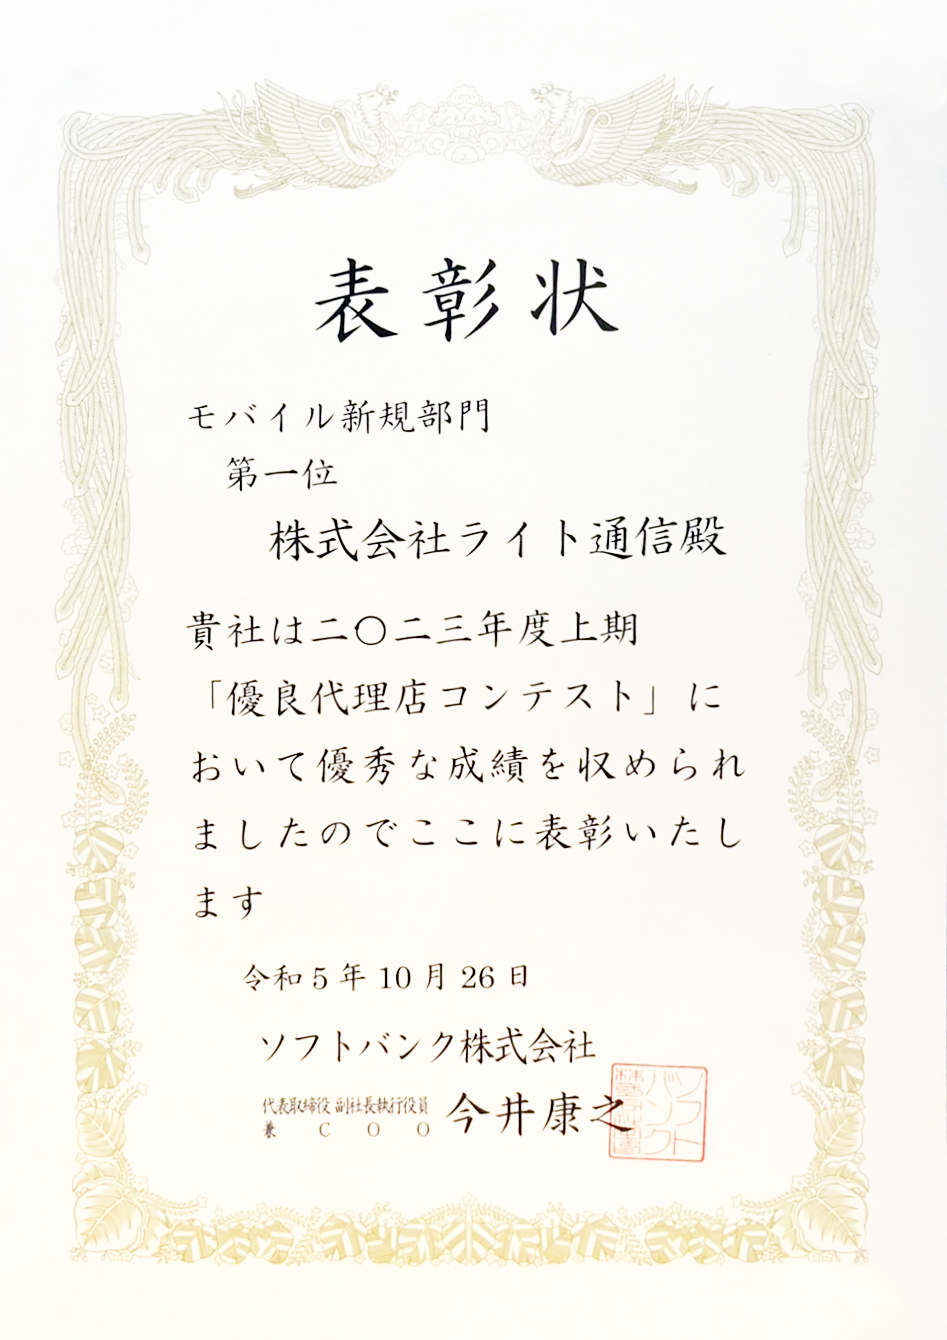 表彰状
モバイル新規部門
第一位
株式会社ライト通信殿
貴社は二〇二三年度上期
「優良代理店コンテスト」に
おいて優秀な成績を収められ
ましたのでここに表彰いたし
ます
令和5年10月26日
ソフトバンク株式会社
代表取締役 副社長執行役員
兼 C O O 今井康之
ソフト
バンク